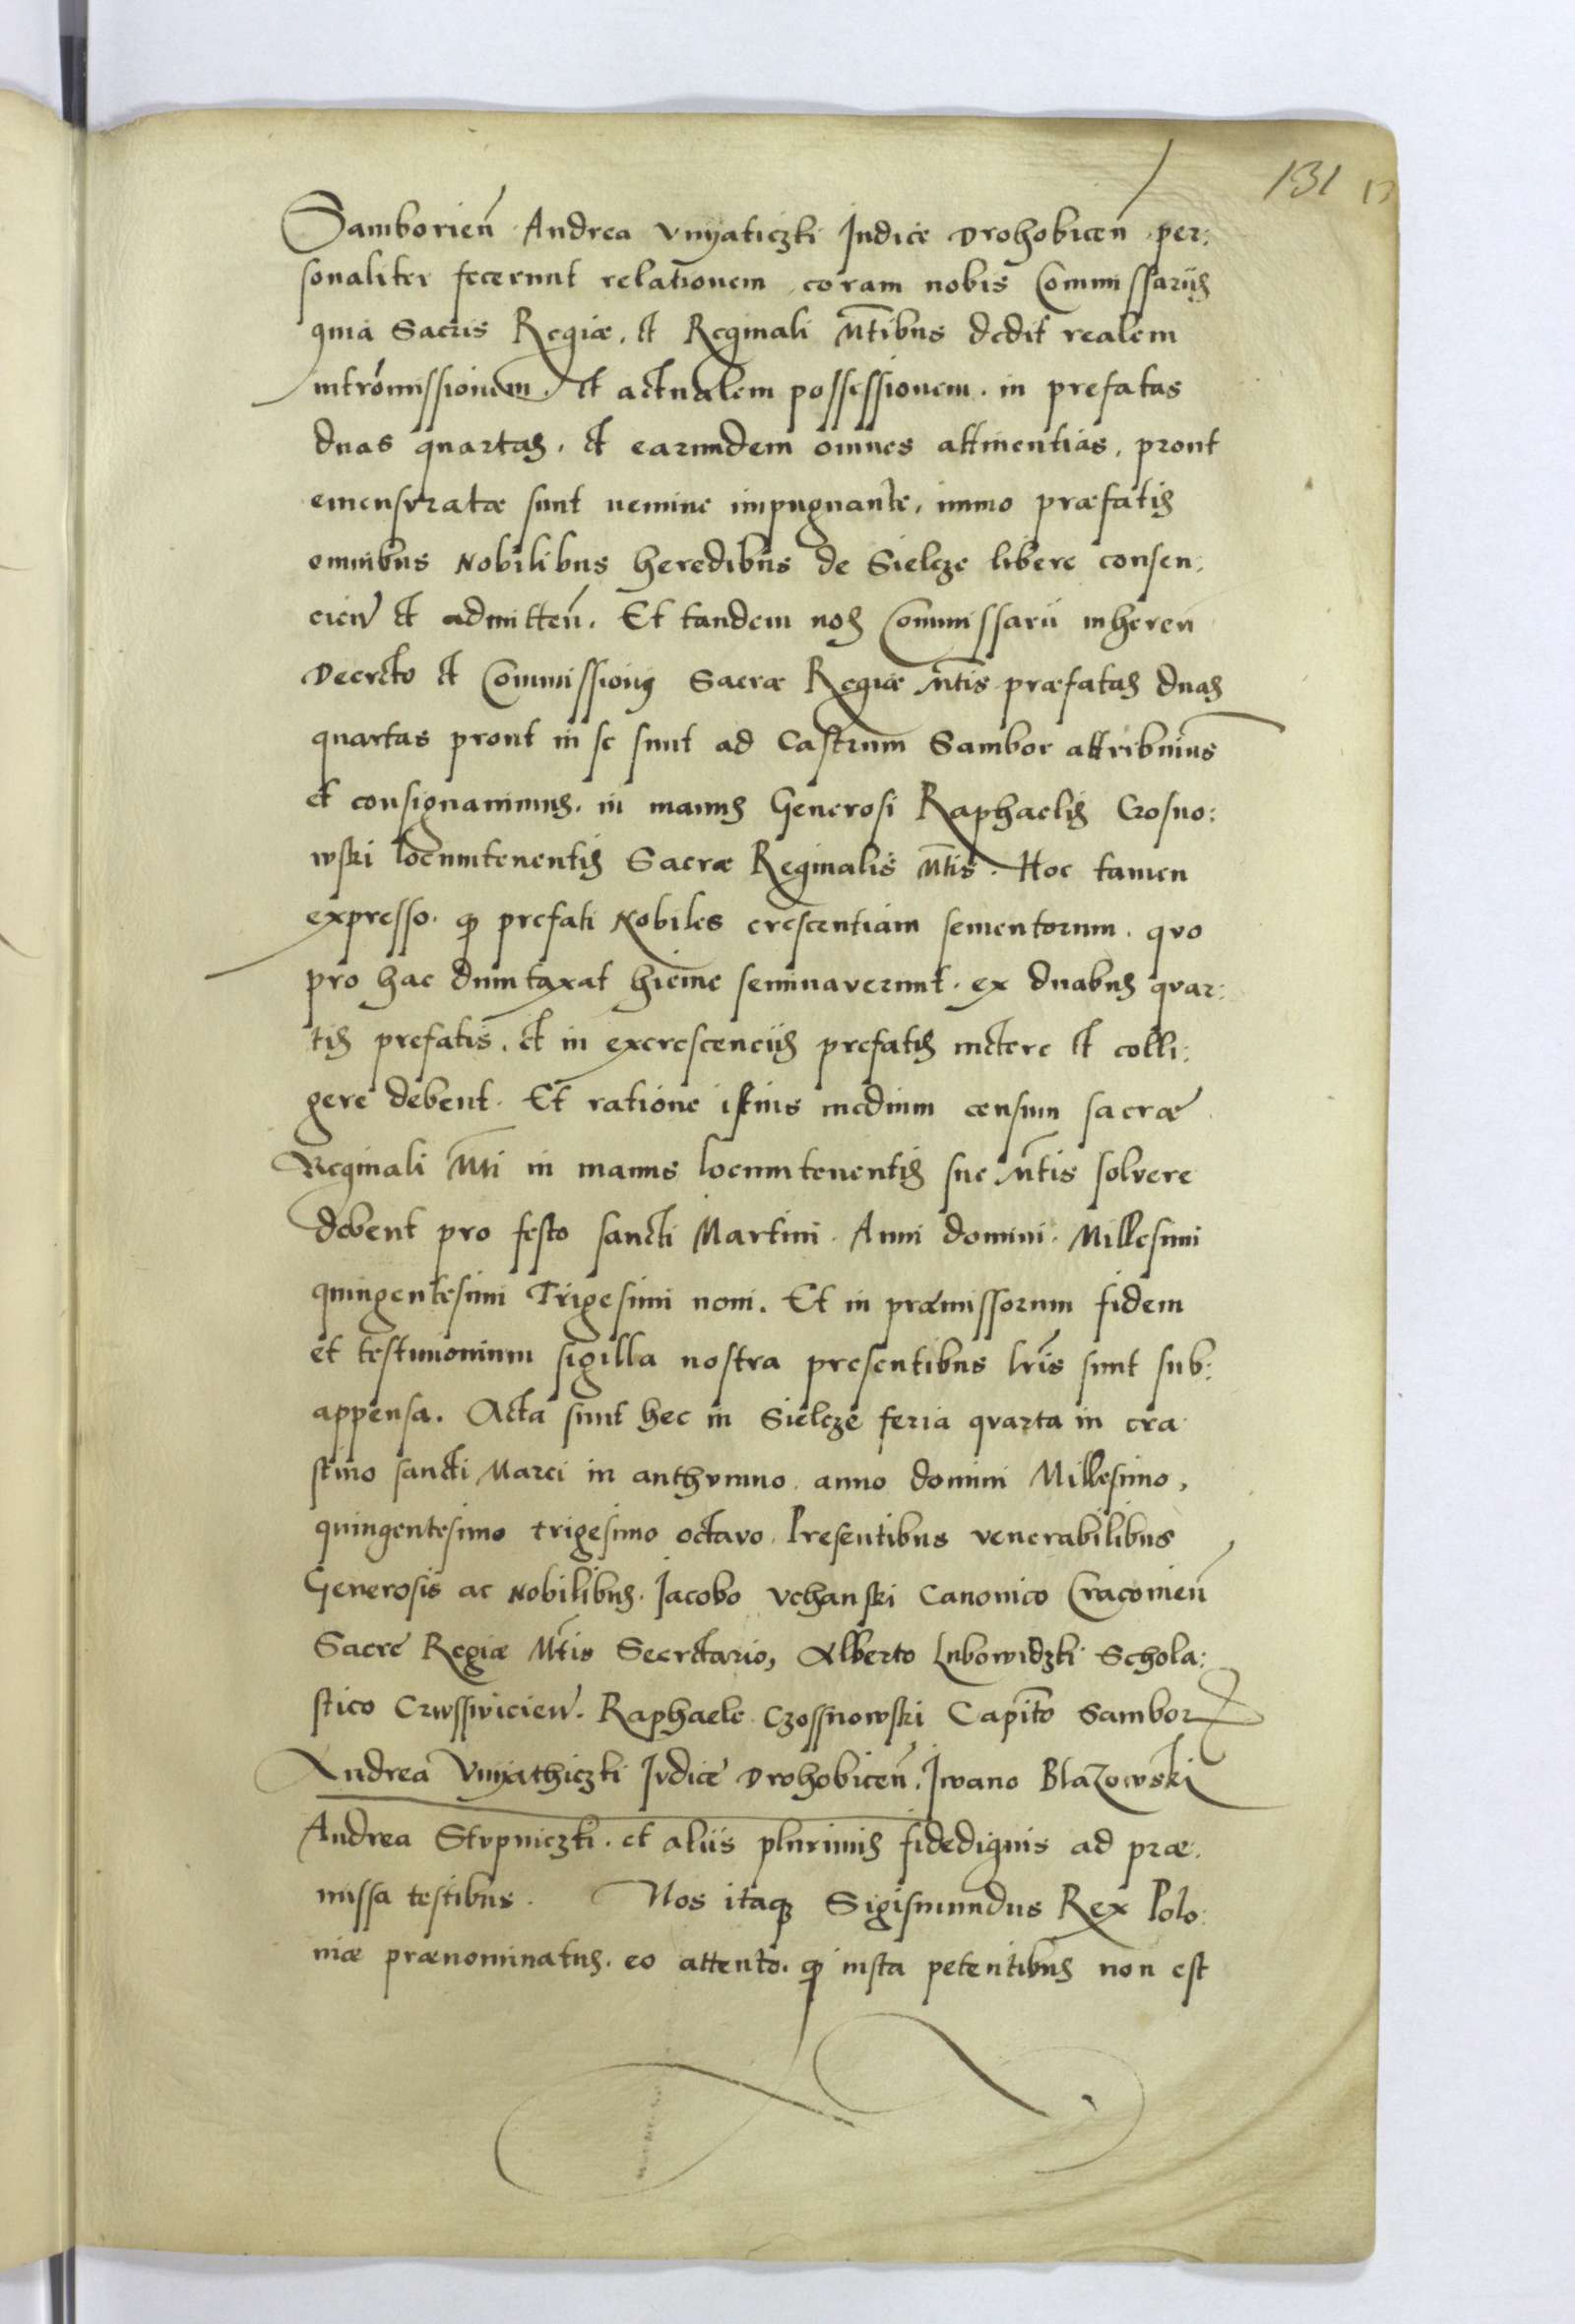 131 13
Samborień Andrea Vnyaticzki Judice Drohobiceń per:
sonaliter fecerunt relationem coram nobis Commissarijs
quia Sacris Regiæ, et Reginali Mtibus dedit realem
intromissionem. et actualem possessionem. in prefatas
duas quartas. et earundem omnes attinentias, prout
emensvratæ sunt nemine impugnante, immo præfatis
omnibus Nobilibus heredibus de Sielcze libere consen:
cień et admitteń. Et tandem nos Commissarii inhereń
Decreto et Commissionj Sacræ Regiæ Mtis præfatas duas
quartas prout in se sunt ad Castrum Sambor attribuim̃us
et consignauimus. in manus Generosi Raphaelis Czosno:
wski locumtenentis Sacræ Reginalis Mtis. Hoc tamen
expresso. qꝫ prefati Nobiles crescentiam sementorum. qvo
pro hac dumtaxat hieme seminaverunt. ex duabus qvar:
tis prefatis. et in excrescencijs prefatis metere et colli:
gere debent. Et ratione istius medium censum sacræ
Reginali Mti in manus locumtenentis sue Mtis solvere
debent pro festo sancti Martini. Anni domini. Millesimi
quingentesimi Trigesimi noni. Et in præmissorum fidem
et testimonium sigilla nostra presentibus lr̃is sunt sub:
appensa. Acta sunt hec in Sielcze feria qvarta in cra
stino sancti Marci in anthvmno. anno domini Millesimo,
quingentesimo trigesimo octavo. Presentibus venerabilibus
Generosis ac Nobilibus. Jacobo Vchanski Canonico Cracouień
Sacre Regiæ Mtis Secretario, Alberto Lubowidzki Schola:
stico Crwsswicień. Raphaele Czossnowski Capit̃o Sambor
Andrea Vnyathiczki Jvdice Drohobiceń. Jwano Blazowski
Andrea Stvpniczki. et aliis plurimis fidedignis ad præ:
missa testibus. Nos itaqꝫ Sigismundus Rex Polo:
niæ prænominatus. eo attento. qꝫ iusta petentibus non est